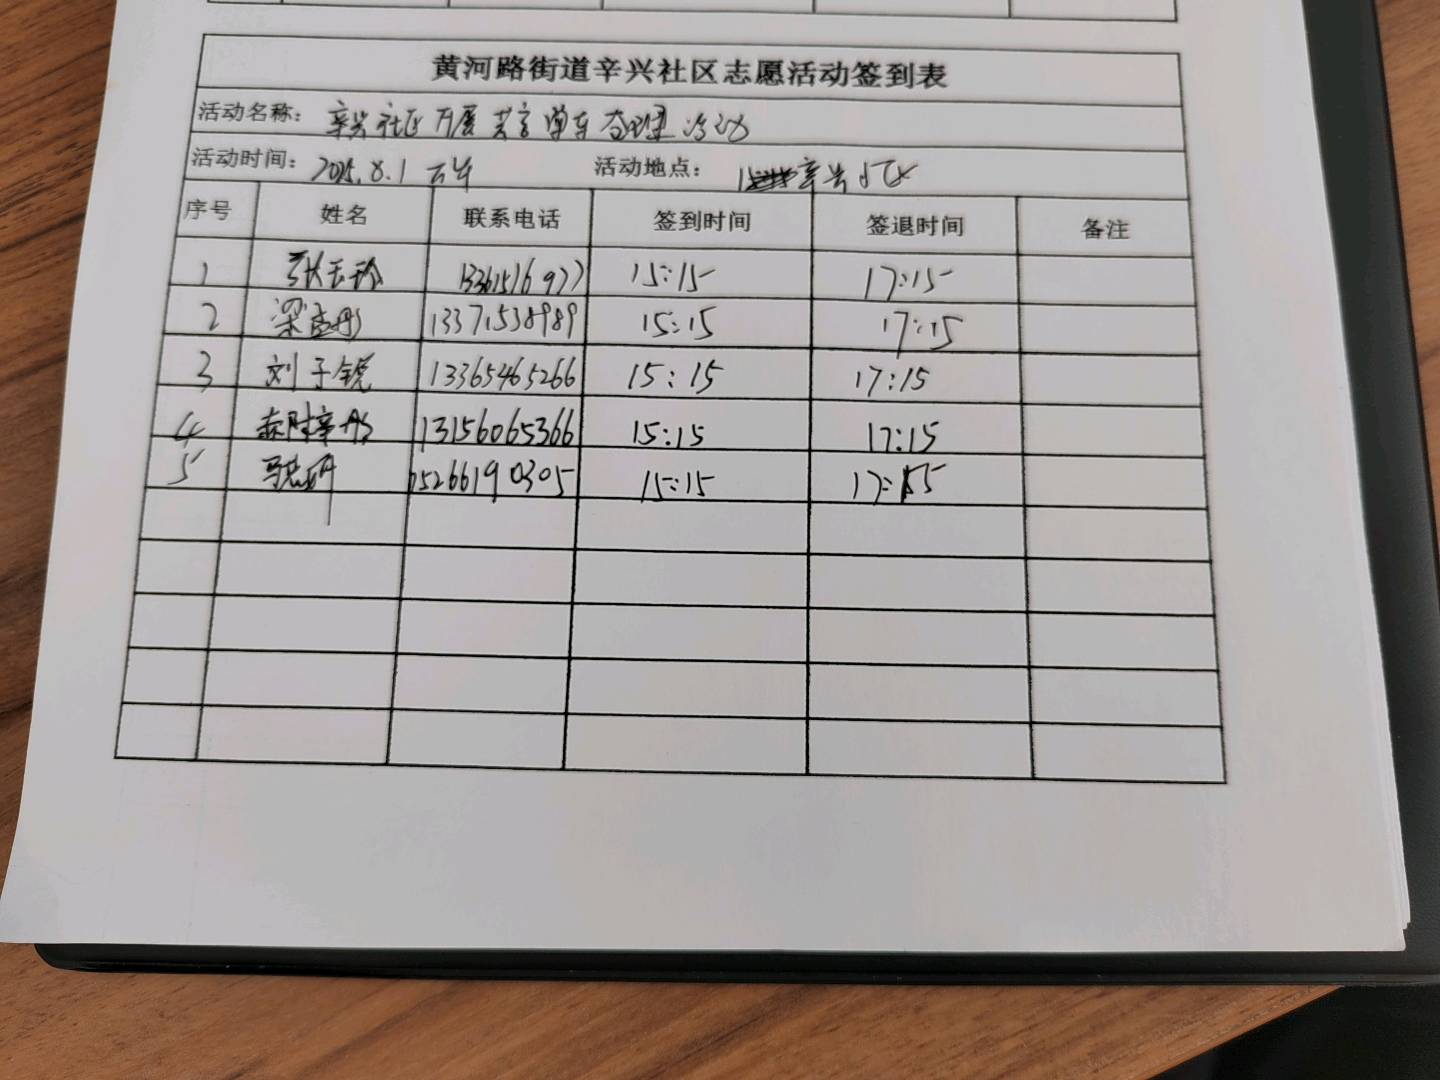 黄河路街道辛兴社区志愿活动签到表
活动名称： 辛兴社区开展共享单车治理活动
活动时间： 2025.8.1 下午 活动地点： 辛兴小区
序号 姓名 联系电话 签到时间 签退时间 备注
1 张玉玲 15:15 17:15
2 梁 13371538989 15:15 17:15
3 刘子锐 13365465266 15:15 17:15
4 13156065366 15:15 17:15
5 15266190305 15:15 17:15